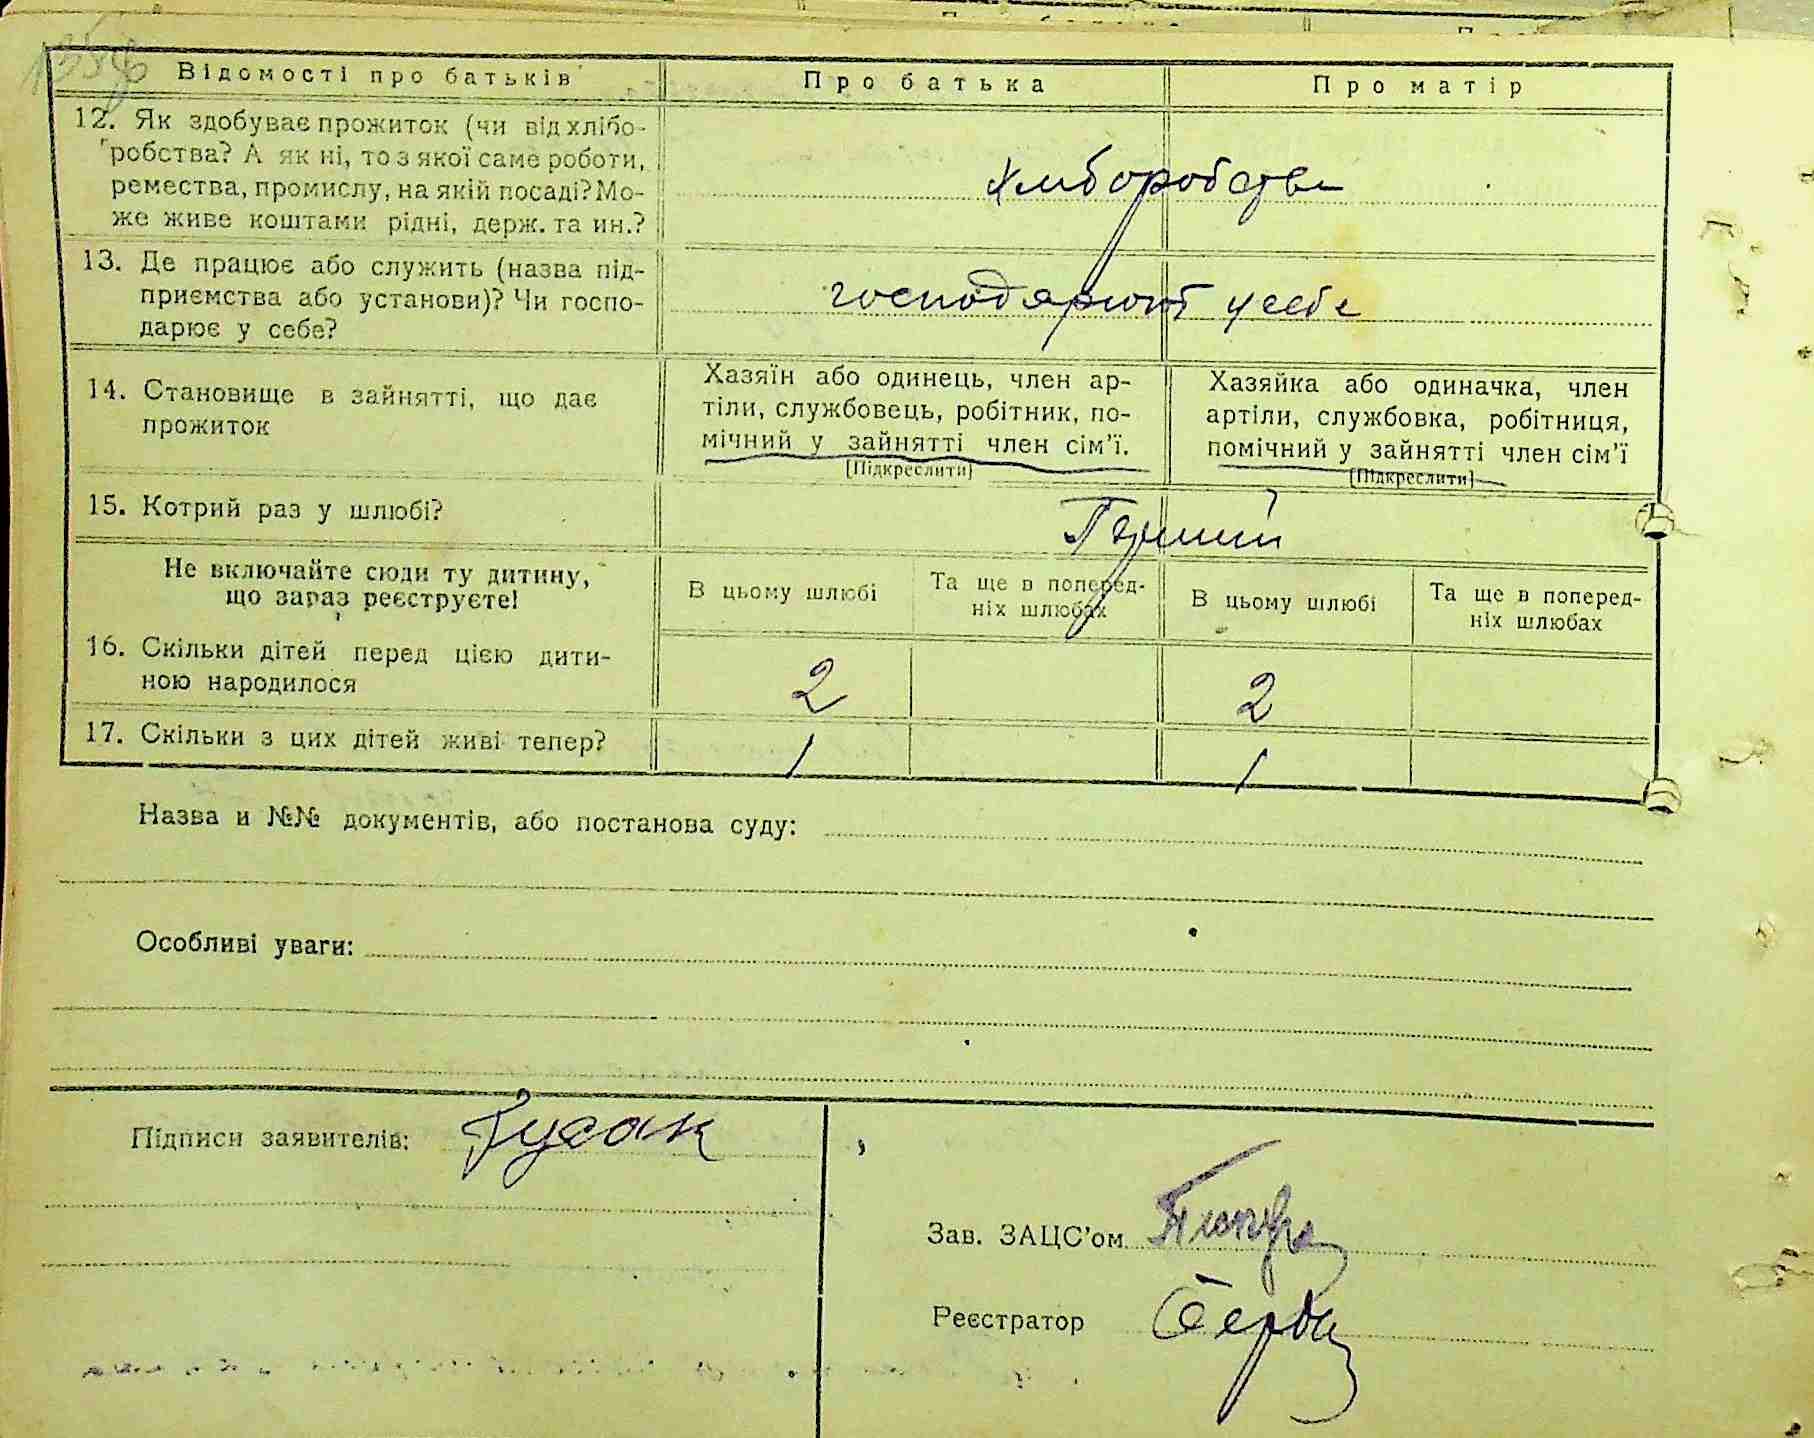 Відомості про батьків Про батька Про матір
12. Як здобуває прожиток (чи від хлібо-
робства? А як ні, то з якої саме роботи,
ремества, промислу, на якій посаді? Мо-
же живе коштами рідні, держ. та ин.?
хлиборобство
13. Де працює або служить (назва під-
приємства або установи)? Чи госпо-
дарює у себе?
господарюют у себе
14. Становище в зайнятті, що дає
прожиток
Хазяїн або одинець, член ар-
тіли, службовець, робітник, по-
мічний у зайнятті член сім'ї.
[Підкреслити]
Хазяйка або одиначка, член
артіли, службовка, робітниця,
помічний у зайнятті член сім'ї
[Підкреслити]
15. Котрий раз у шлюбі?
Перший
Не включайте сюди ту дитину,
що зараз реєструєте!
В цьому шлюбі
Та ще в поперед-
ніх шлюбах
В цьому шлюбі
Та ще в поперед-
ніх шлюбах
16. Скільки дітей перед цією дити-
ною народилося
2 2
17. Скільки з цих дітей живі тепер? 1 1
Назва и №№ документів, або постанова суду:
Особливі уваги:
Підписи заявителів: Гусак
Зав. ЗАЦС'ом
Реєстратор